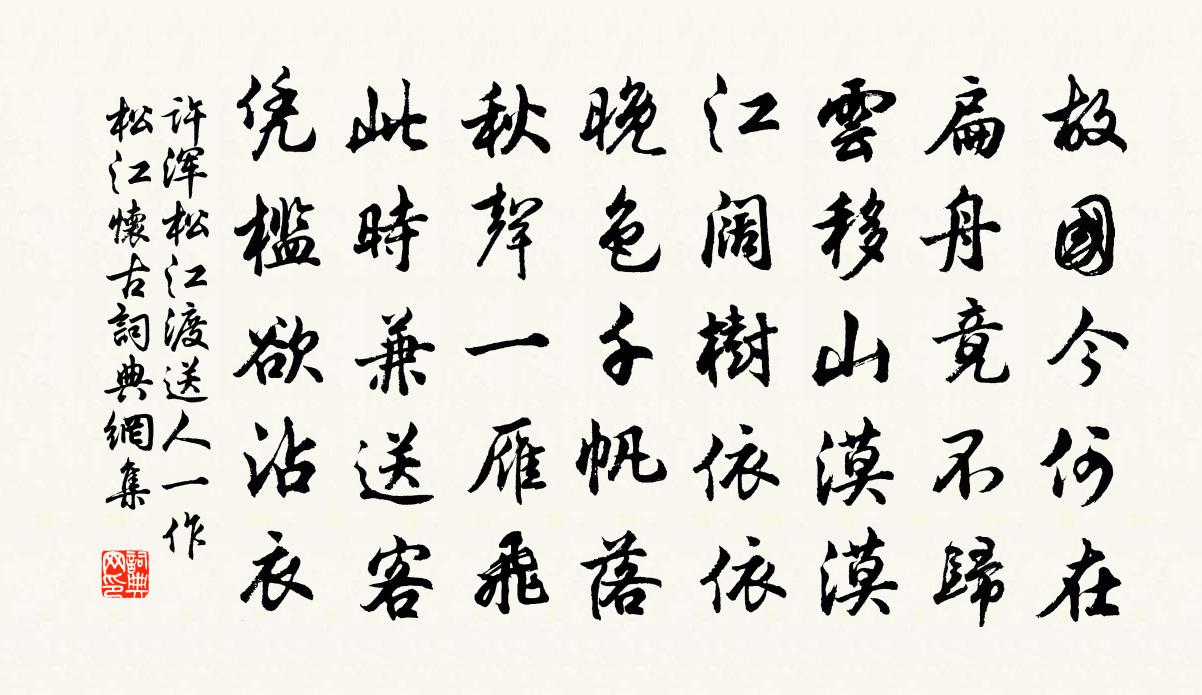 故國今何在
扁舟竟不歸
雲移山漠漠
江闊樹依依
晚色千帆落
秋聲一雁飛
此時兼送客
凭檻欲沾衣
许浑松江渡送人一作
松江懷古詞典網集
詞典网印